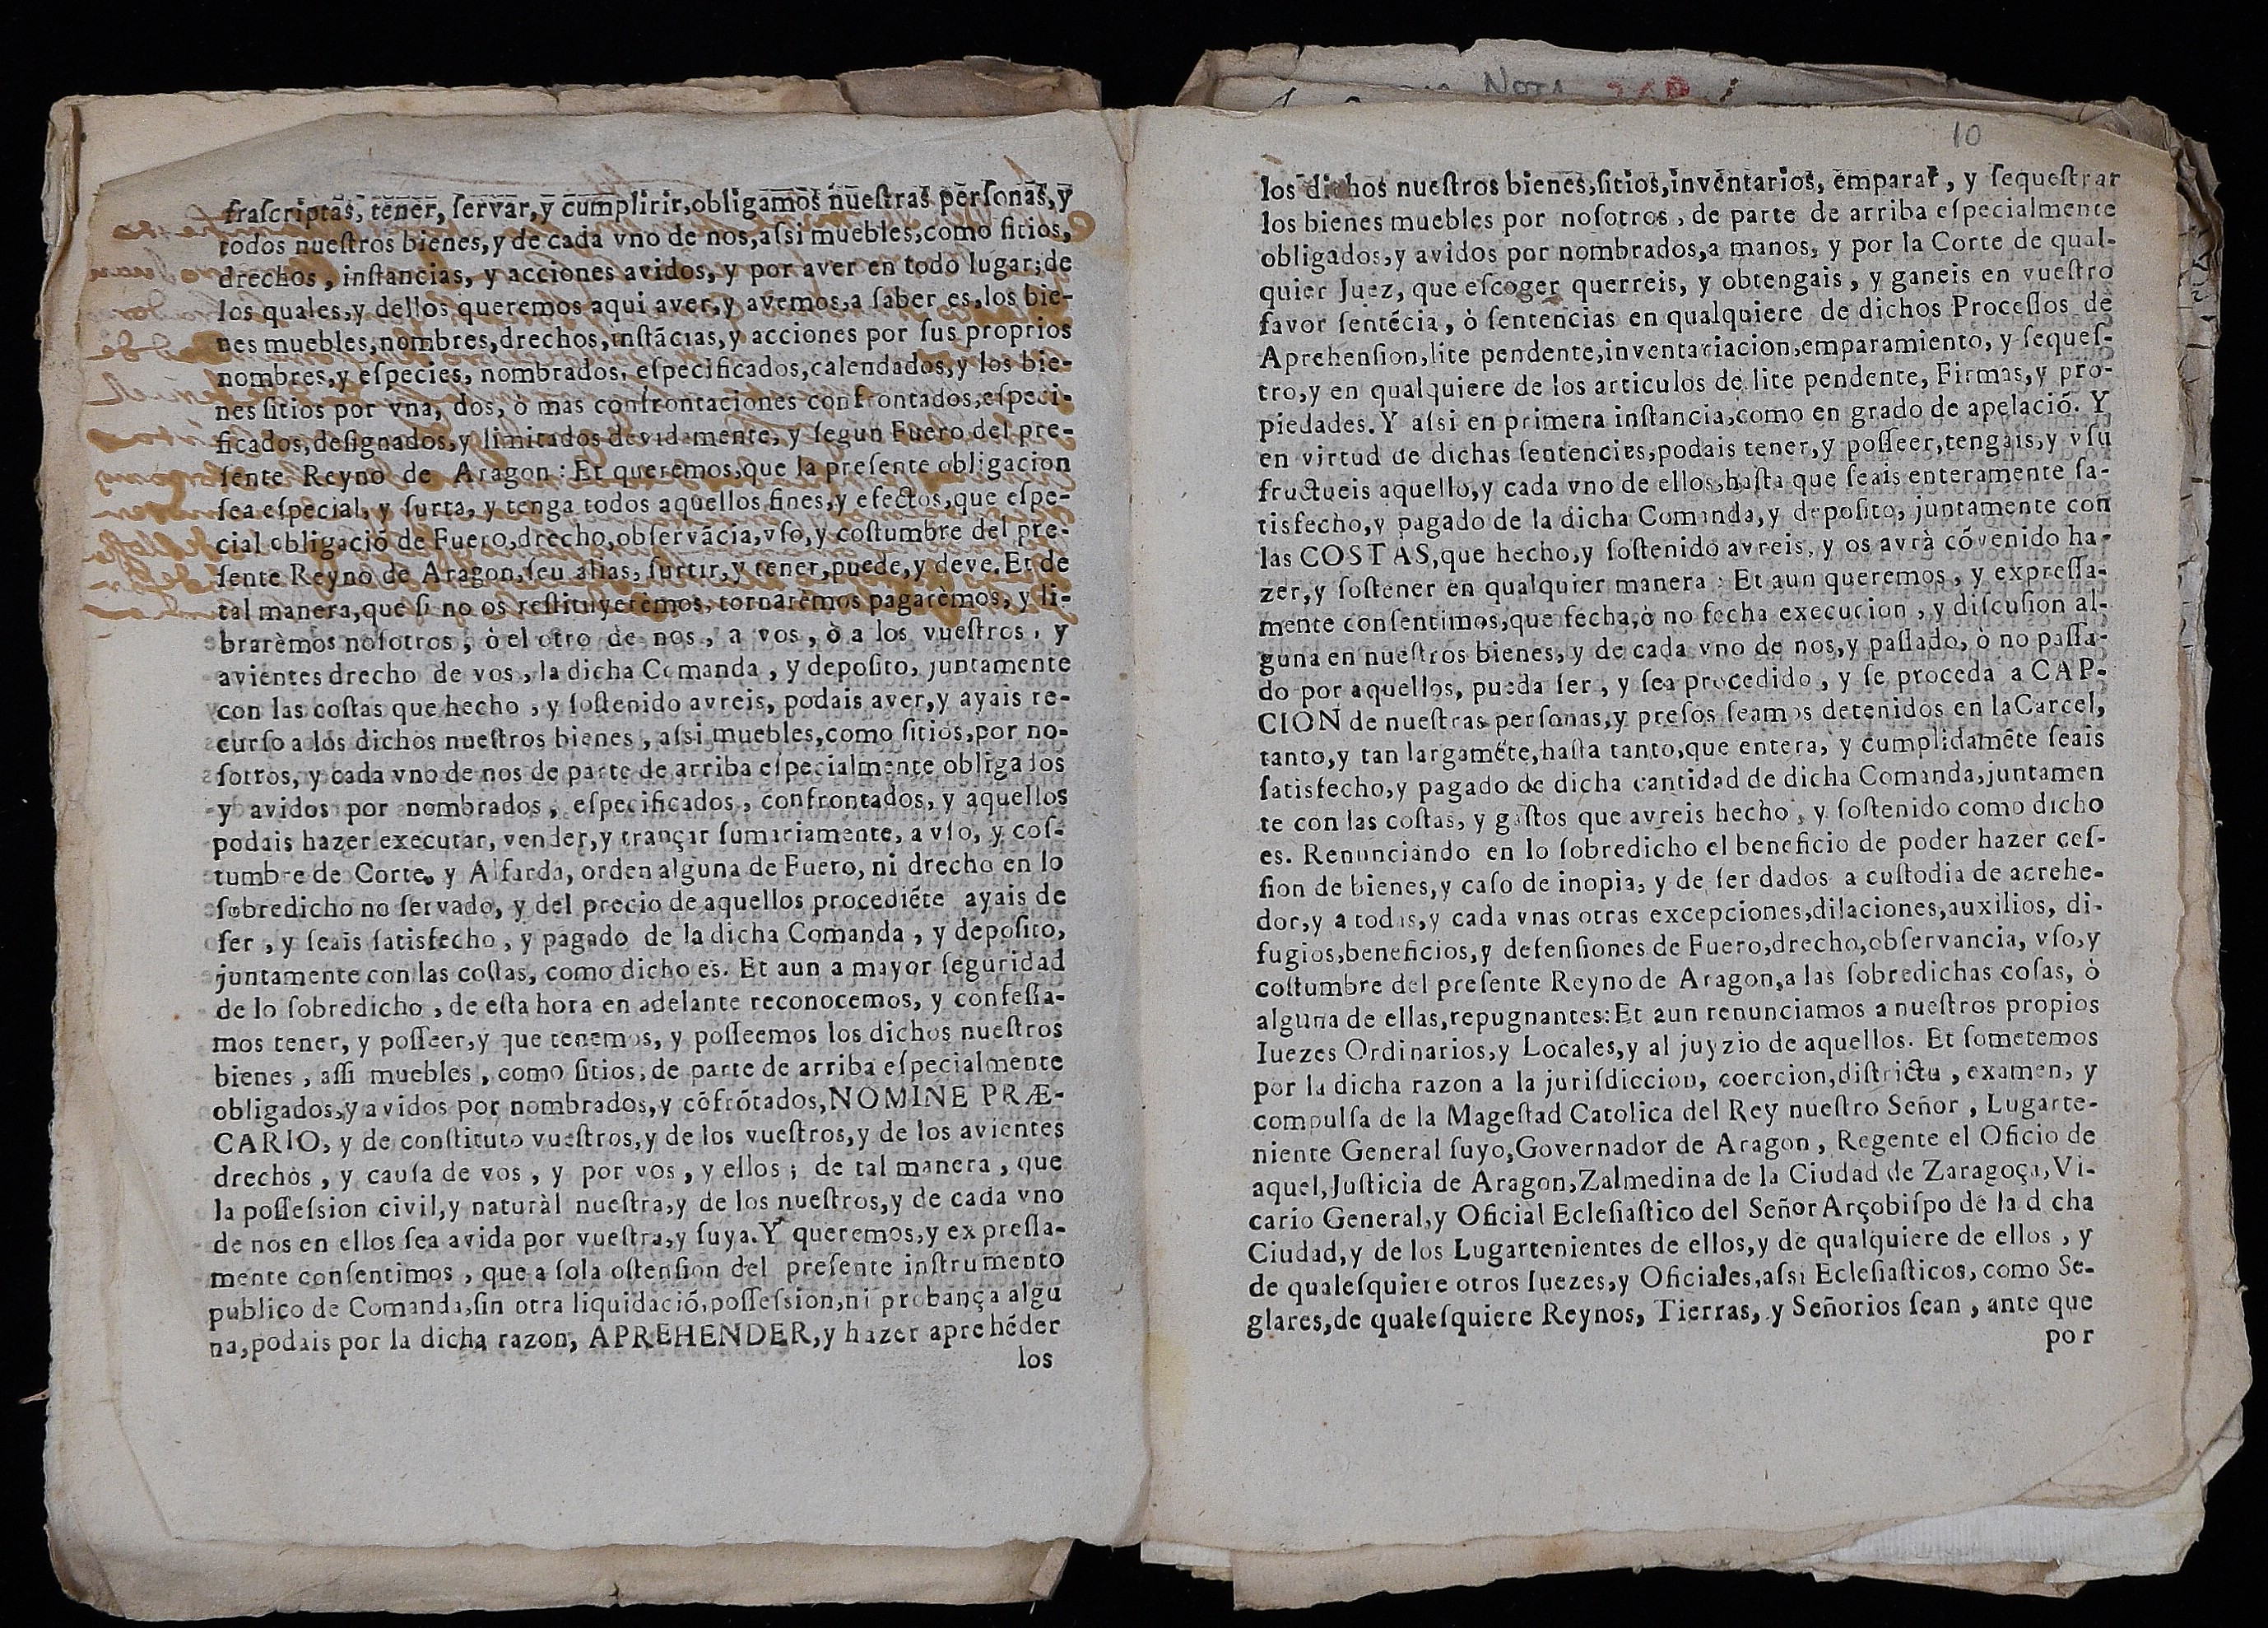 fraſcriptas, tener, ſervar, y cumplirir, obligamos nueſtras perſonas, y
todos nueſtros bienes, y de cada vno de nos, aſsi muebles, como ſitios,
drechos, inſtancias, y acciones avidos, y por aver en todo lugar; de
los quales, y dellos queremos aqui aver, y avemos, a ſaber es, los bie-
nes muebles, nombres, drechos, inſtãcias, y acciones por ſus proprios
nombres, y eſpecies, nombrados, eſpecificados, calendados, y los bie-
nes ſitios por vna, dos, ò mas confrontaciones confrontados, eſpeci-
ficados, deſignados, y limitados devidamente, y ſegun Fuero del pre-
ſente Reyno de Aragon: Et queremos, que la preſente obligacion
ſea eſpecial, y ſurta, y tenga todos aquellos fines, y efectos, que eſpe-
cial obligació de Fuero, drecho, obſervãcia, vſo, y coſtumbre del pre-
ſente Reyno de Aragon, ſeu alias, ſurtir, y tener, puede, y deve. Et de
tal manera, que ſi no os reſtituyerèmos, tornarèmos pagarèmos, y li-
brarèmos noſotros, ò el otro de nos, a vos, ò a los vueſtros, y
avientes drecho de vos, la dicha Comanda, y depoſito, juntamente
con las coſtas que hecho, y ſoſtenido avreis, podais aver, y ayais re-
curſo a los dichos nueſtros bienes, aſsi muebles, como ſitios, por no-
ſotros, y cada vno de nos de parte de arriba eſpecialmente obligados
y avidos por nombrados, eſpecificados, confrontados, y aquellos
podais hazer executar, vender, y trançar ſumariamente, a vſo, y coſ-
tumbre de Corte, y Alfarda, orden alguna de Fuero, ni drecho en lo
ſobredicho no ſervado, y del precio de aquellos procediéte ayais de
ſer, y ſeais ſatisfecho, y pagado de la dicha Comanda, y depoſito,
juntamente con las coſtas, como dicho es. Et aun a mayor ſeguridad
de lo ſobredicho, de eſta hora en adelante reconocemos, y confeſſa-
mos tener, y poſſeer, y que tenemos, y poſſeemos los dichos nueſtros
bienes, aſſi muebles, como ſitios, de parte de arriba eſpecialmente
obligados, y avidos por nombrados, y cõfrótados, NOMINE PRÆ-
CARIO, y de conſtituto vueſtros, y de los vueſtros, y de los avientes
drechos, y cauſa de vos, y por vos, y ellos; de tal manera, que
la poſſeſsion civil, y naturàl nueſtra, y de los nueſtros, y de cada vno
de nos en ellos ſea avida por vueſtra, y ſuya. Y queremos, y expreſſa-
mente conſentimos, que a ſola oſtenſion del preſente inſtrumento
publico de Comanda, ſin otra liquidació, poſſeſsion, ni probança algu
na, podais por la dicha razon, APREHENDER, y hazer aprehéder
los
10
los dichos nueſtros bienes, ſitios, inventarios, emparar, y ſequeſtrar
los bienes muebles por noſotros, de parte de arriba eſpecialmente
obligados, y avidos por nombrados, a manos, y por la Corte de qual-
quier Juez, que eſcoger querreis, y obtengais, y ganeis en vueſtro
favor ſentécia, ò ſentencias en qualquiere de dichos Proceſſos de
Aprehenſion, lite pendente, inventariacion, emparamiento, y ſequeſ-
tro, y en qualquiere de los articulos de lite pendente, Firmas, y pro-
piedades. Y aſsi en primera inſtancia, como en grado de apelació. Y
en virtud de dichas ſentencies, podais tener, y poſſeer, tengais, y vſu
fructueis aquello, y cada vno de ellos, haſta que ſeais enteramente ſa-
tisfecho, y pagado de la dicha Comanda, y depoſito, juntamente con
las COSTAS, que hecho, y ſoſtenido avreis, y os avrà cóvenido ha-
zer, y ſoſtener en qualquier manera: Et aun queremos, y expreſſa-
mente conſentimos, que fecha, ò no fecha execucion, y diſcuſion al-
guna en nueſtros bienes, y de cada vno de nos, y paſſado, ò no paſſa-
do por aquellos, pueda ſer, y ſea procedido, y ſe proceda a CAP-
CION de nueſtras perſonas, y preſos ſeamos detenidos en la Carcel,
tanto, y tan largaméte, haſta tanto, que entera, y cumplidaméte ſeais
ſatisfecho, y pagado de dicha cantidad de dicha Comanda, juntamen
te con las coſtas, y gaſtos que avreis hecho, y ſoſtenido como dicho
es. Renunciando en lo ſobredicho el beneficio de poder hazer ceſ-
ſion de bienes, y caſo de inopia, y de ſer dados a cuſtodia de acrehe-
dor, y a todas, y cada vnas otras excepciones, dilaciones, auxilios, di-
fugios, beneficios, y defenſiones de Fuero, drecho, obſervancia, vſo, y
coſtumbre del preſente Reyno de Aragon, a las ſobredichas coſas, ò
alguna de ellas, repugnantes: Et aun renunciamos a nueſtros propios
Iuezes Ordinarios, y Locales, y al juyzio de aquellos. Et ſometemos
por la dicha razon a la juriſdiccion, coercion, diſtrictu, examen, y
compulſa de la Mageſtad Catolica del Rey nueſtro Señor, Lugarte-
niente General ſuyo, Governador de Aragon, Regente el Oficio de
aquel, Juſticia de Aragon, Zalmedina de la Ciudad de Zaragoça, Vi-
cario General, y Oficial Ecleſiaſtico del Señor Arçobiſpo de la d cha
Ciudad, y de los Lugartenientes de ellos, y de qualquiere de ellos, y
de qualeſquiere otros Iuezes, y Oficiales, aſsi Ecleſiaſticos, como Se-
glares, de qualeſquiere Reynos, Tierras, y Señorios ſean, ante que
por